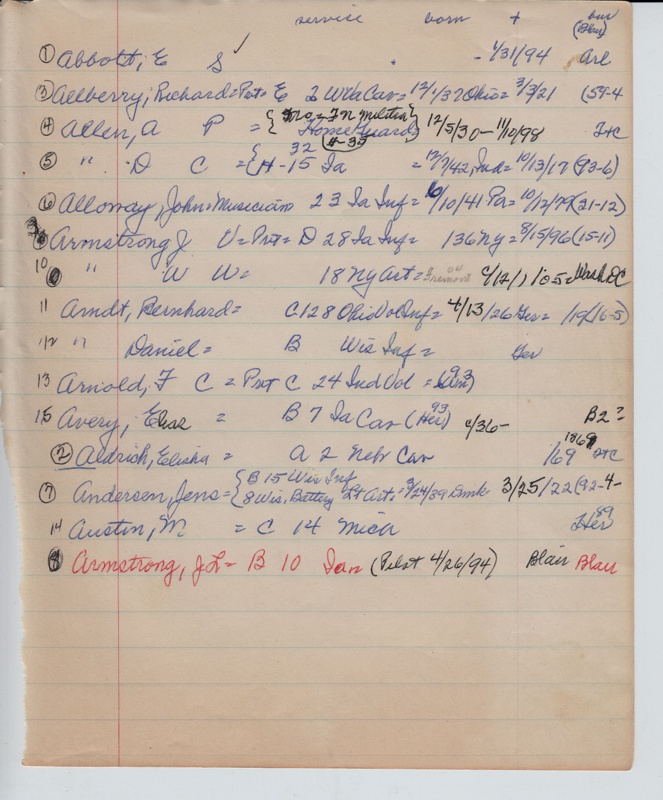 service born + bur
(Blair)
① Abbott, E S ✓ - 1/31/94 Arl
③ Aelberry, Richard = Pvt = E 2 W Va Cav = 12/1/37 Ohio = 3/3/21 (59-4
④ Allen, A P = { Home Guards } 12/5/30 - 11/10/98 Ft C
32 (#-35)
⑤ " D C = { H - 15 Ia = 12/7/42, Ind = 10/13/17 (93-6)
⑥ Alloway, John = Musician 23 Ia Inf = 10/10/41 Pa = 10/12/79 (21-12)
Armstrong J V = Pvt = D 28 Ia Inf = 136 NY = 8/15/96 (15-11)
10 " W W = 18 NY Art = Fremont Wash DC
11 Arndt, Bernhard = C 128 Ohio Vol Inf = 4/13/26 Ger = (16-5)
12 " Daniel = B Wis Inf = Ger
13 Arnold, F C = Pvt C 24 Ind Vol = 93
15 Avery, Elias = B 7 Ia Cav (Her) 93 4/36 - B2?
② Aldrich, Elisha = A 2 Nebr Cav /69 1869 Ft C
⑦ Andersen, Jens = { B 15 Wis Inf
8 Wis. Battery Lt Art = 3/24/39 Dmk 3/25/22 (92-4-
14 Austin, M = C 14 Mich Her 89
Armstrong, J L = B 10 Ian (Pilot 4/26/94) Blair Blair